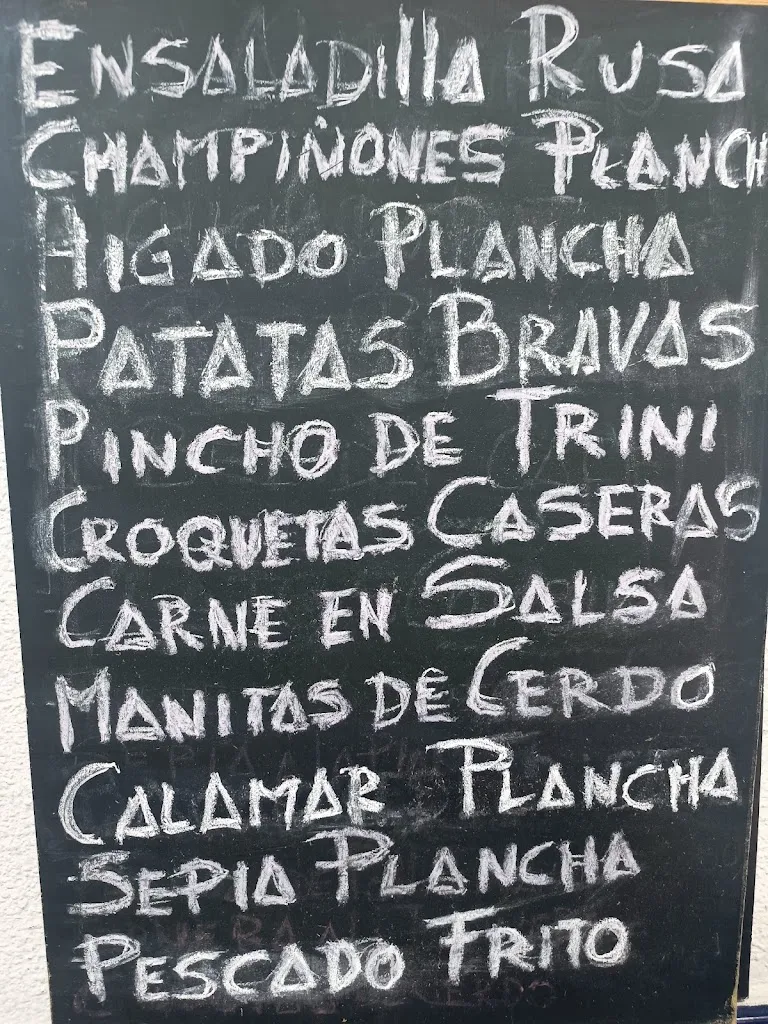 ENSALADIllA RUSA
CHAMPIÑONES PLANCH
HIGADO PLANCHA
PATATAS BRAVAS
PINCHO DE TRINI
CROQUETAS CASERAS
CARNE EN SALSA
MANITAS DE CERDO
CALAMAR PLANCHA
SEPIA PLANCHA
PESCADO FRITO